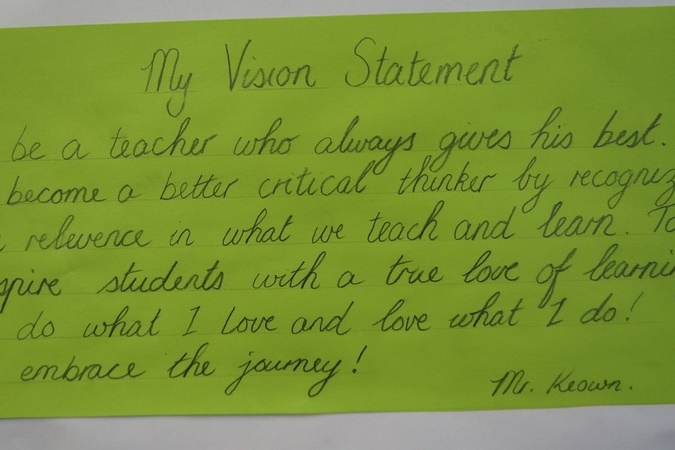 My Vision Statement
be a teacher who always gives his best.
become a better critical thinker by recogniz
relevence in what we teach and learn. To
spire students with a true love of learnin
do what I love and love what I do!
embrace the journey!
Mr. Keown.